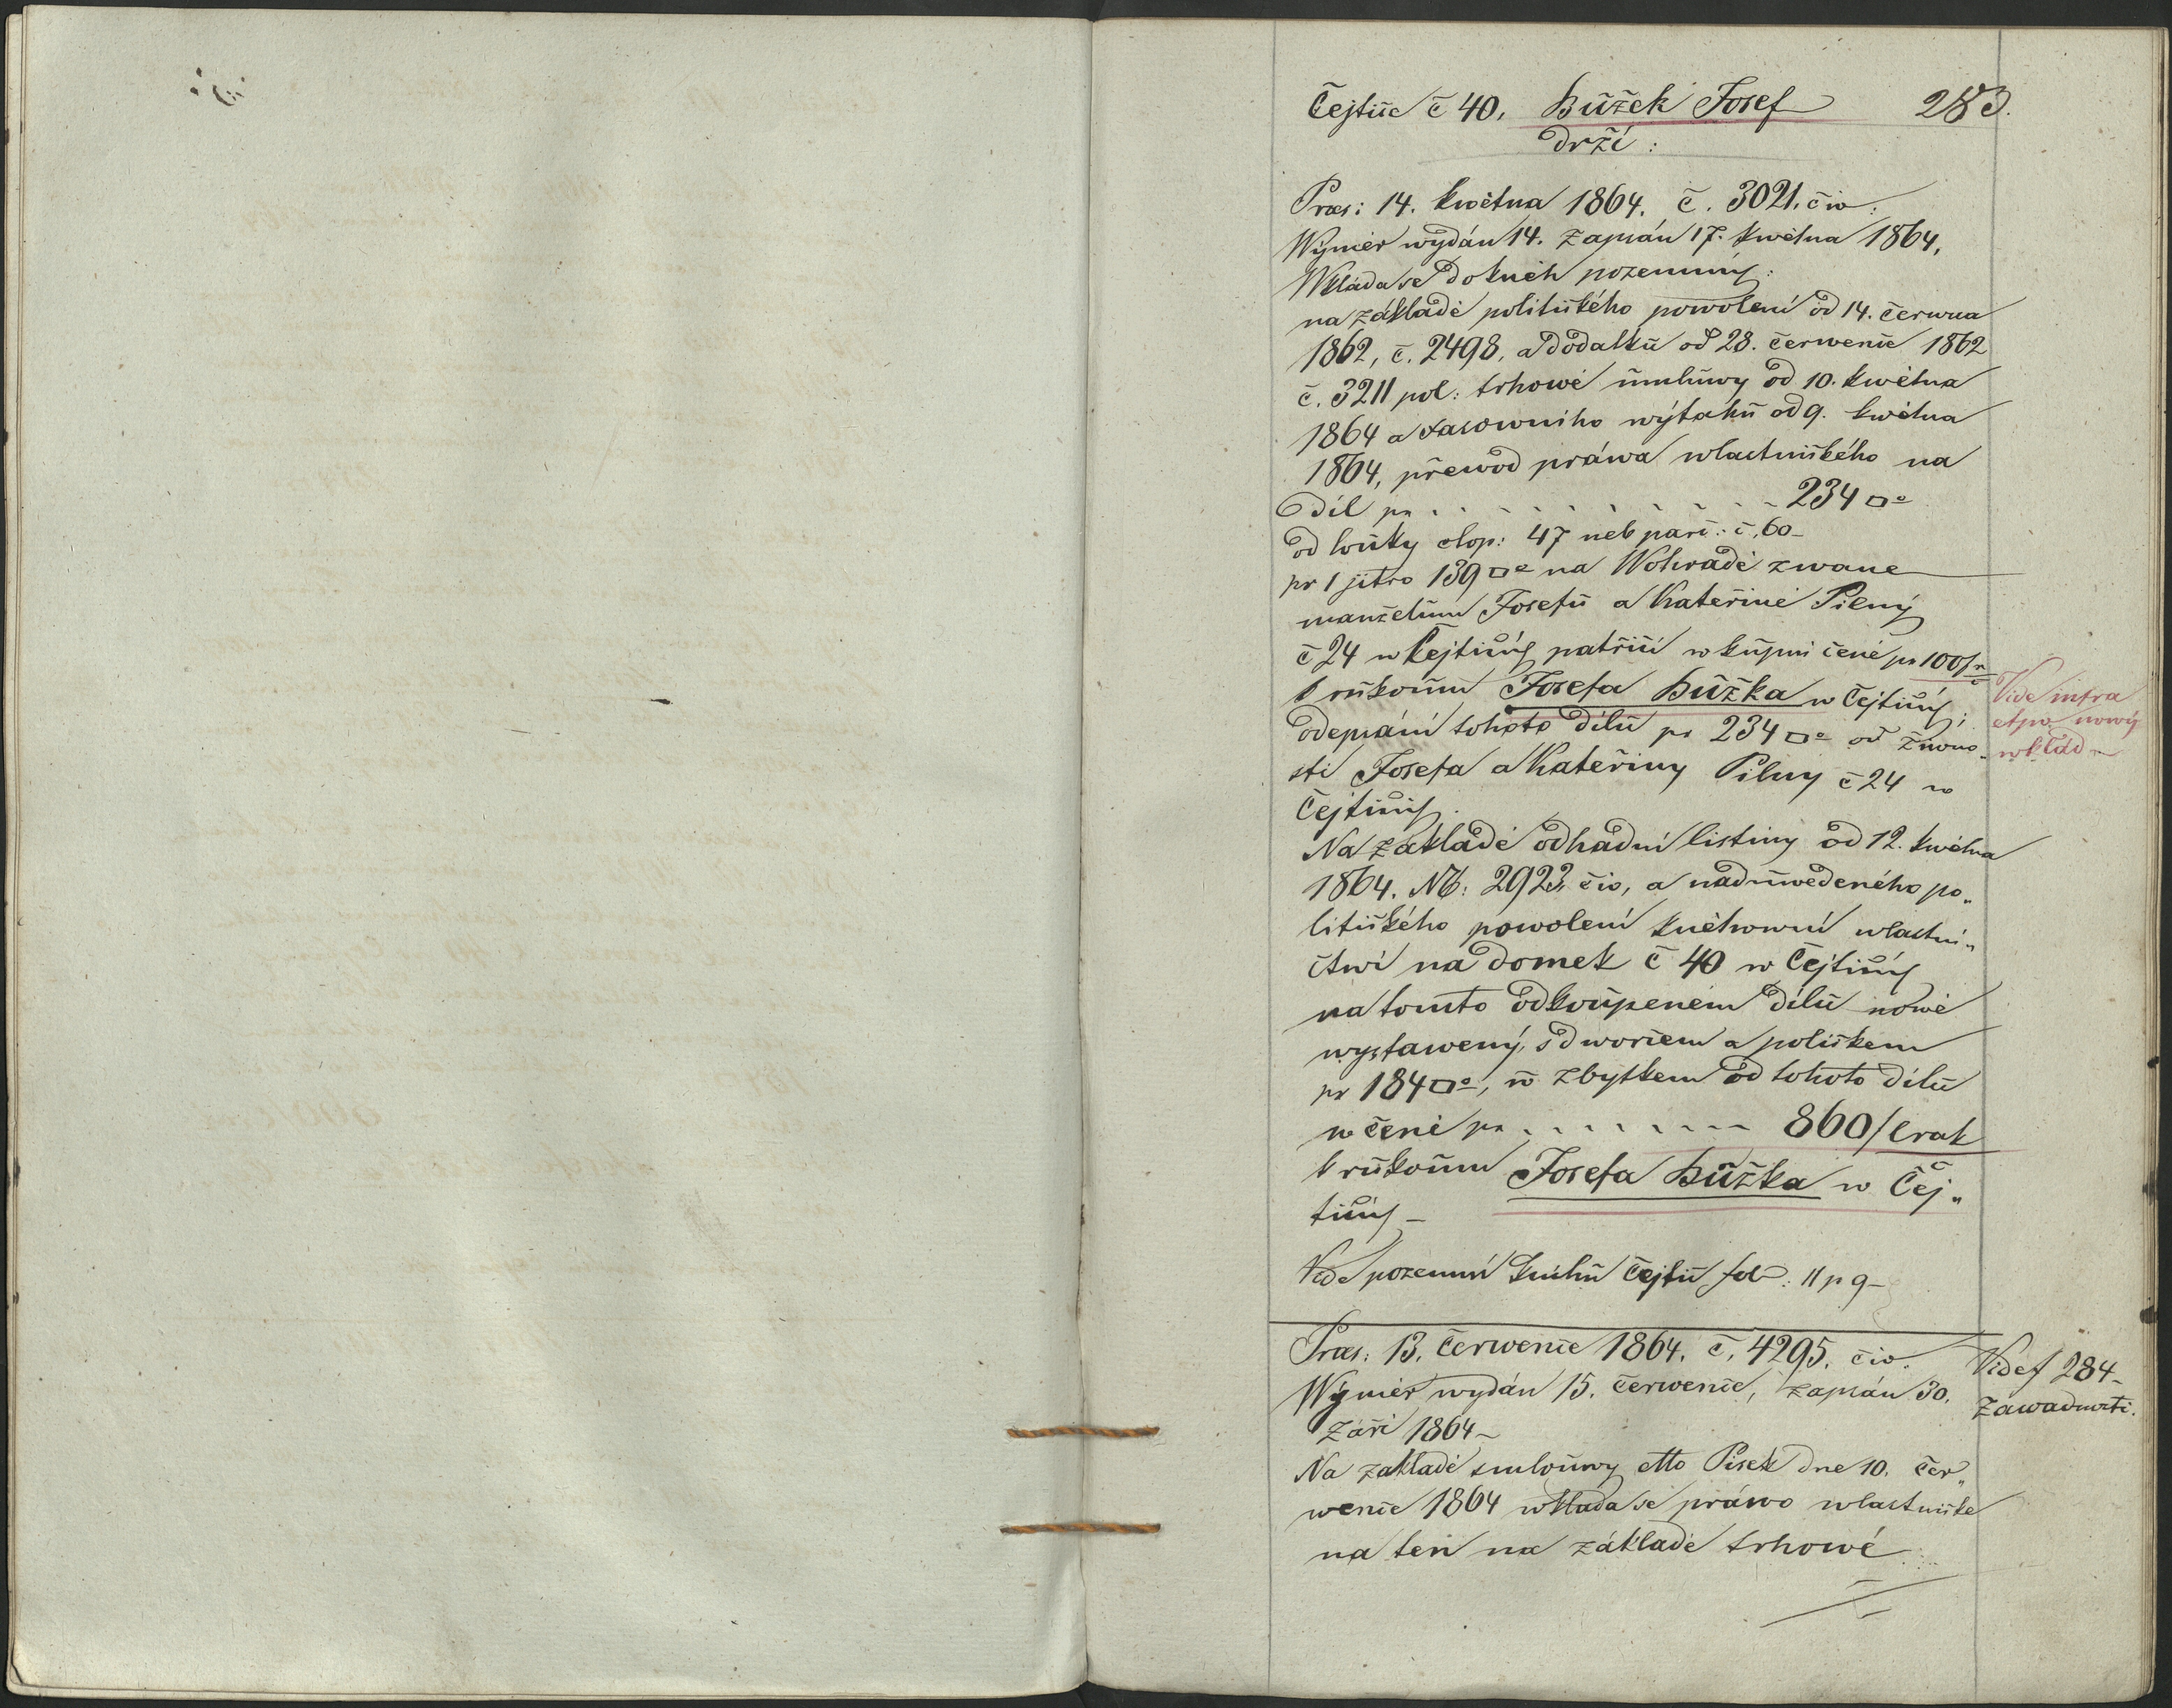 Čejtic č 40. Bůžek Josef 283.
drží:
Præs: 14. května 1864. č. 3021. civ:
Wýměr wydán 14. zapsán 17. května 1864.
Wkládá se do kněh pozemných:
na základě politického powolení od 14. června
1862, č. 2498, a dodatku od 28. července 1862
č. 3211 pol: trhowé smluwy od 10. kwětna
1864 a wýtahu od 9. kwětna
1864, přewod práwa wlastnického na
díl pr . . . . . . . . . 234 □°
od loučky top: 47 neb parc: č. 60 –
pr 1 jitro 139 □° na Wohradě zwané
manželům Josefu a Kateřině Pilný
č 24 w Čejticých patřící w kupní ceně pr 100 f
k rukoum Josefa Bůžka w Čejticých;
odepsání tohoto dílu pr 234 □° od žiwno„
sti Josefa a Kateřiny Pilny č 24 w
Čejticých.
Na základě odhadní listiny od 12. kwětna
1864. №: 2923. civ, a naduwedeného po„
litického powolení knéhowní wlastni„
ctwí na domek č 40 w Čejticých
na tomto odkoupeném dílu nowě
wystawený, s dworcem a políčkem
pr 184 □°, w zbytkem od tohoto dílu
w ceně pr . . . . . . . . 860 f
k rukoum Josefa Bůžka w Čej„
ticých –
Vide pozemní knihu Čejtic fol: 11 p 9 –
Vide infra
nowý
wklad –
Præs: 13. července 1864. č. 4295. civ.
Wýměr wydán 15. července, zapsán 30.
září 1864 –
Na základě smlouwy dtto Písek dne 10. čer„
wence 1864 wkládá se práwo wlastnické
na ten na základě trhowé
Vide f 284 –
Zawadnosti.